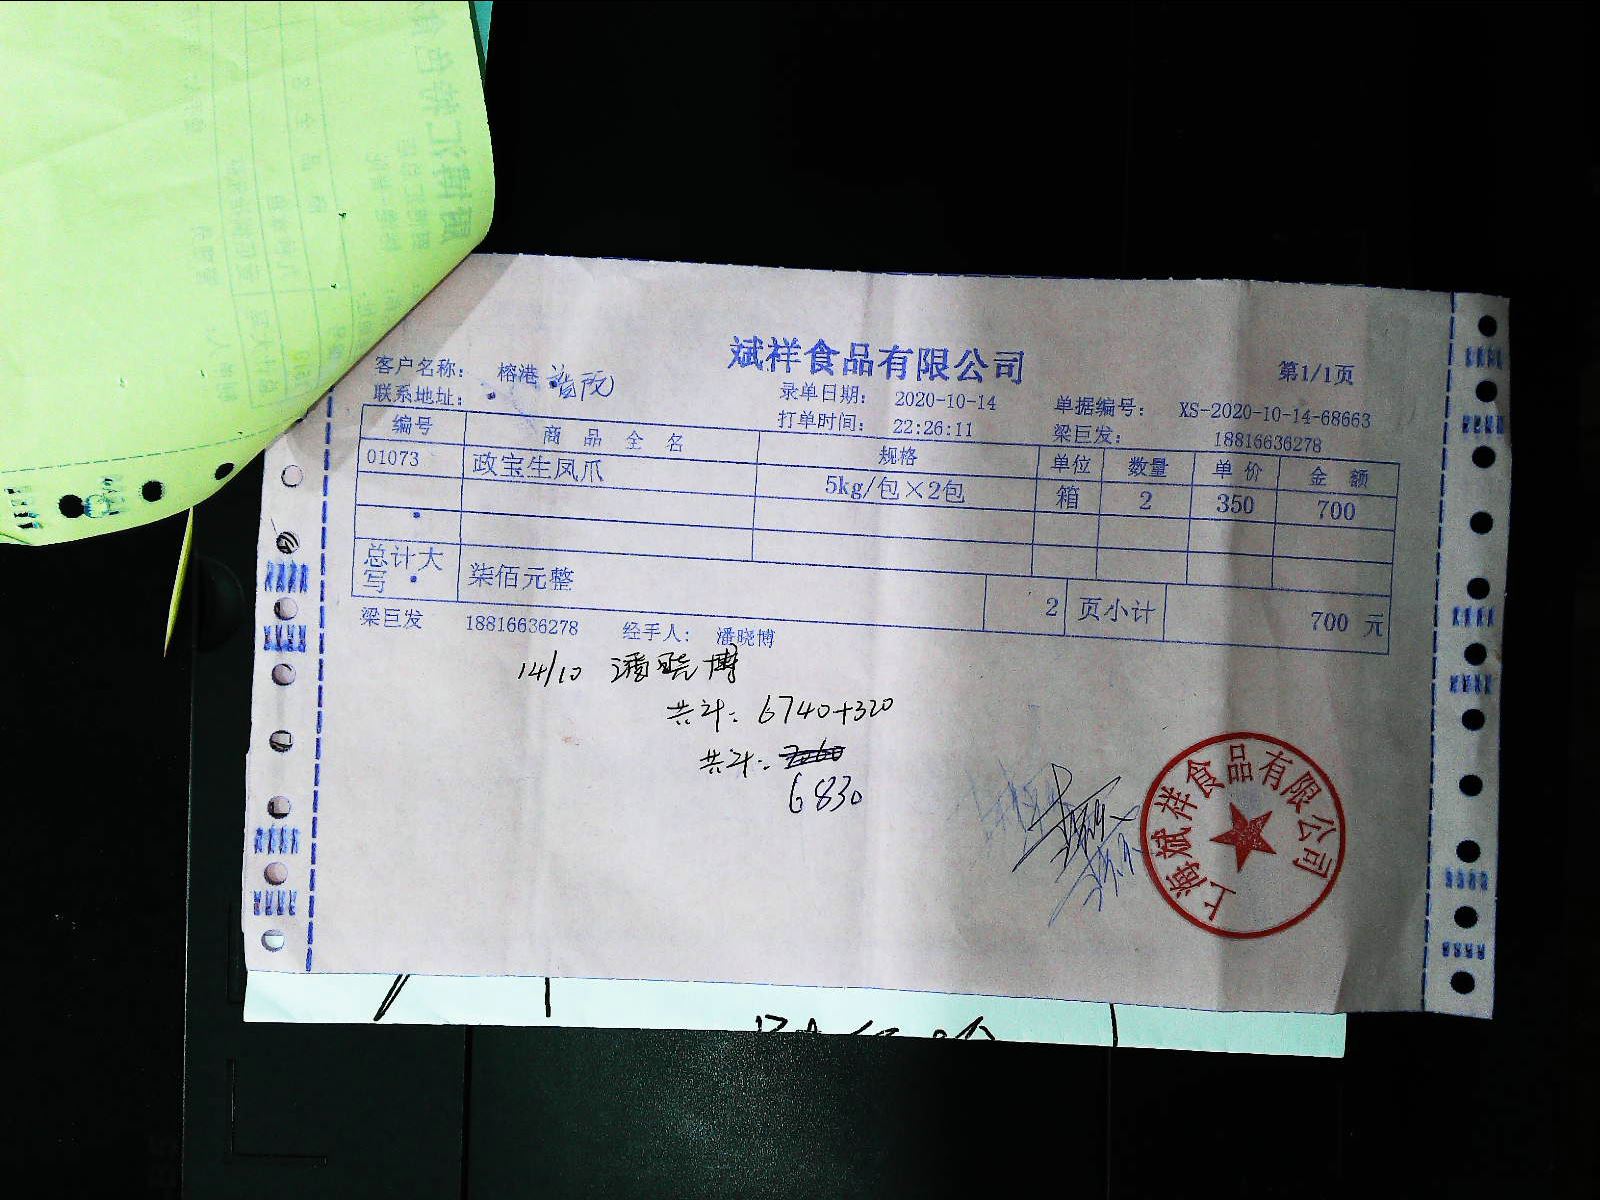 斌祥食品有限公司
第1/1页
客户名称: 榕港
联系地址:
录单日期: 2020-10-14
单据编号: XS-2020-10-14-68663
打单时间: 22:26:11
梁巨发: 18816636278
编号 商品全名 规格 单位 数量 单价 金额
01073 政宝生凤爪 5kg/包×2包 箱 2 350 700
总计大写 柒佰元整 2 页小计 700 元
梁巨发 18816636278 经手人: 潘晓博
14/10 潘晓博
共计: 6740+320
共计: 7060
6830
上海斌祥食品有限公司